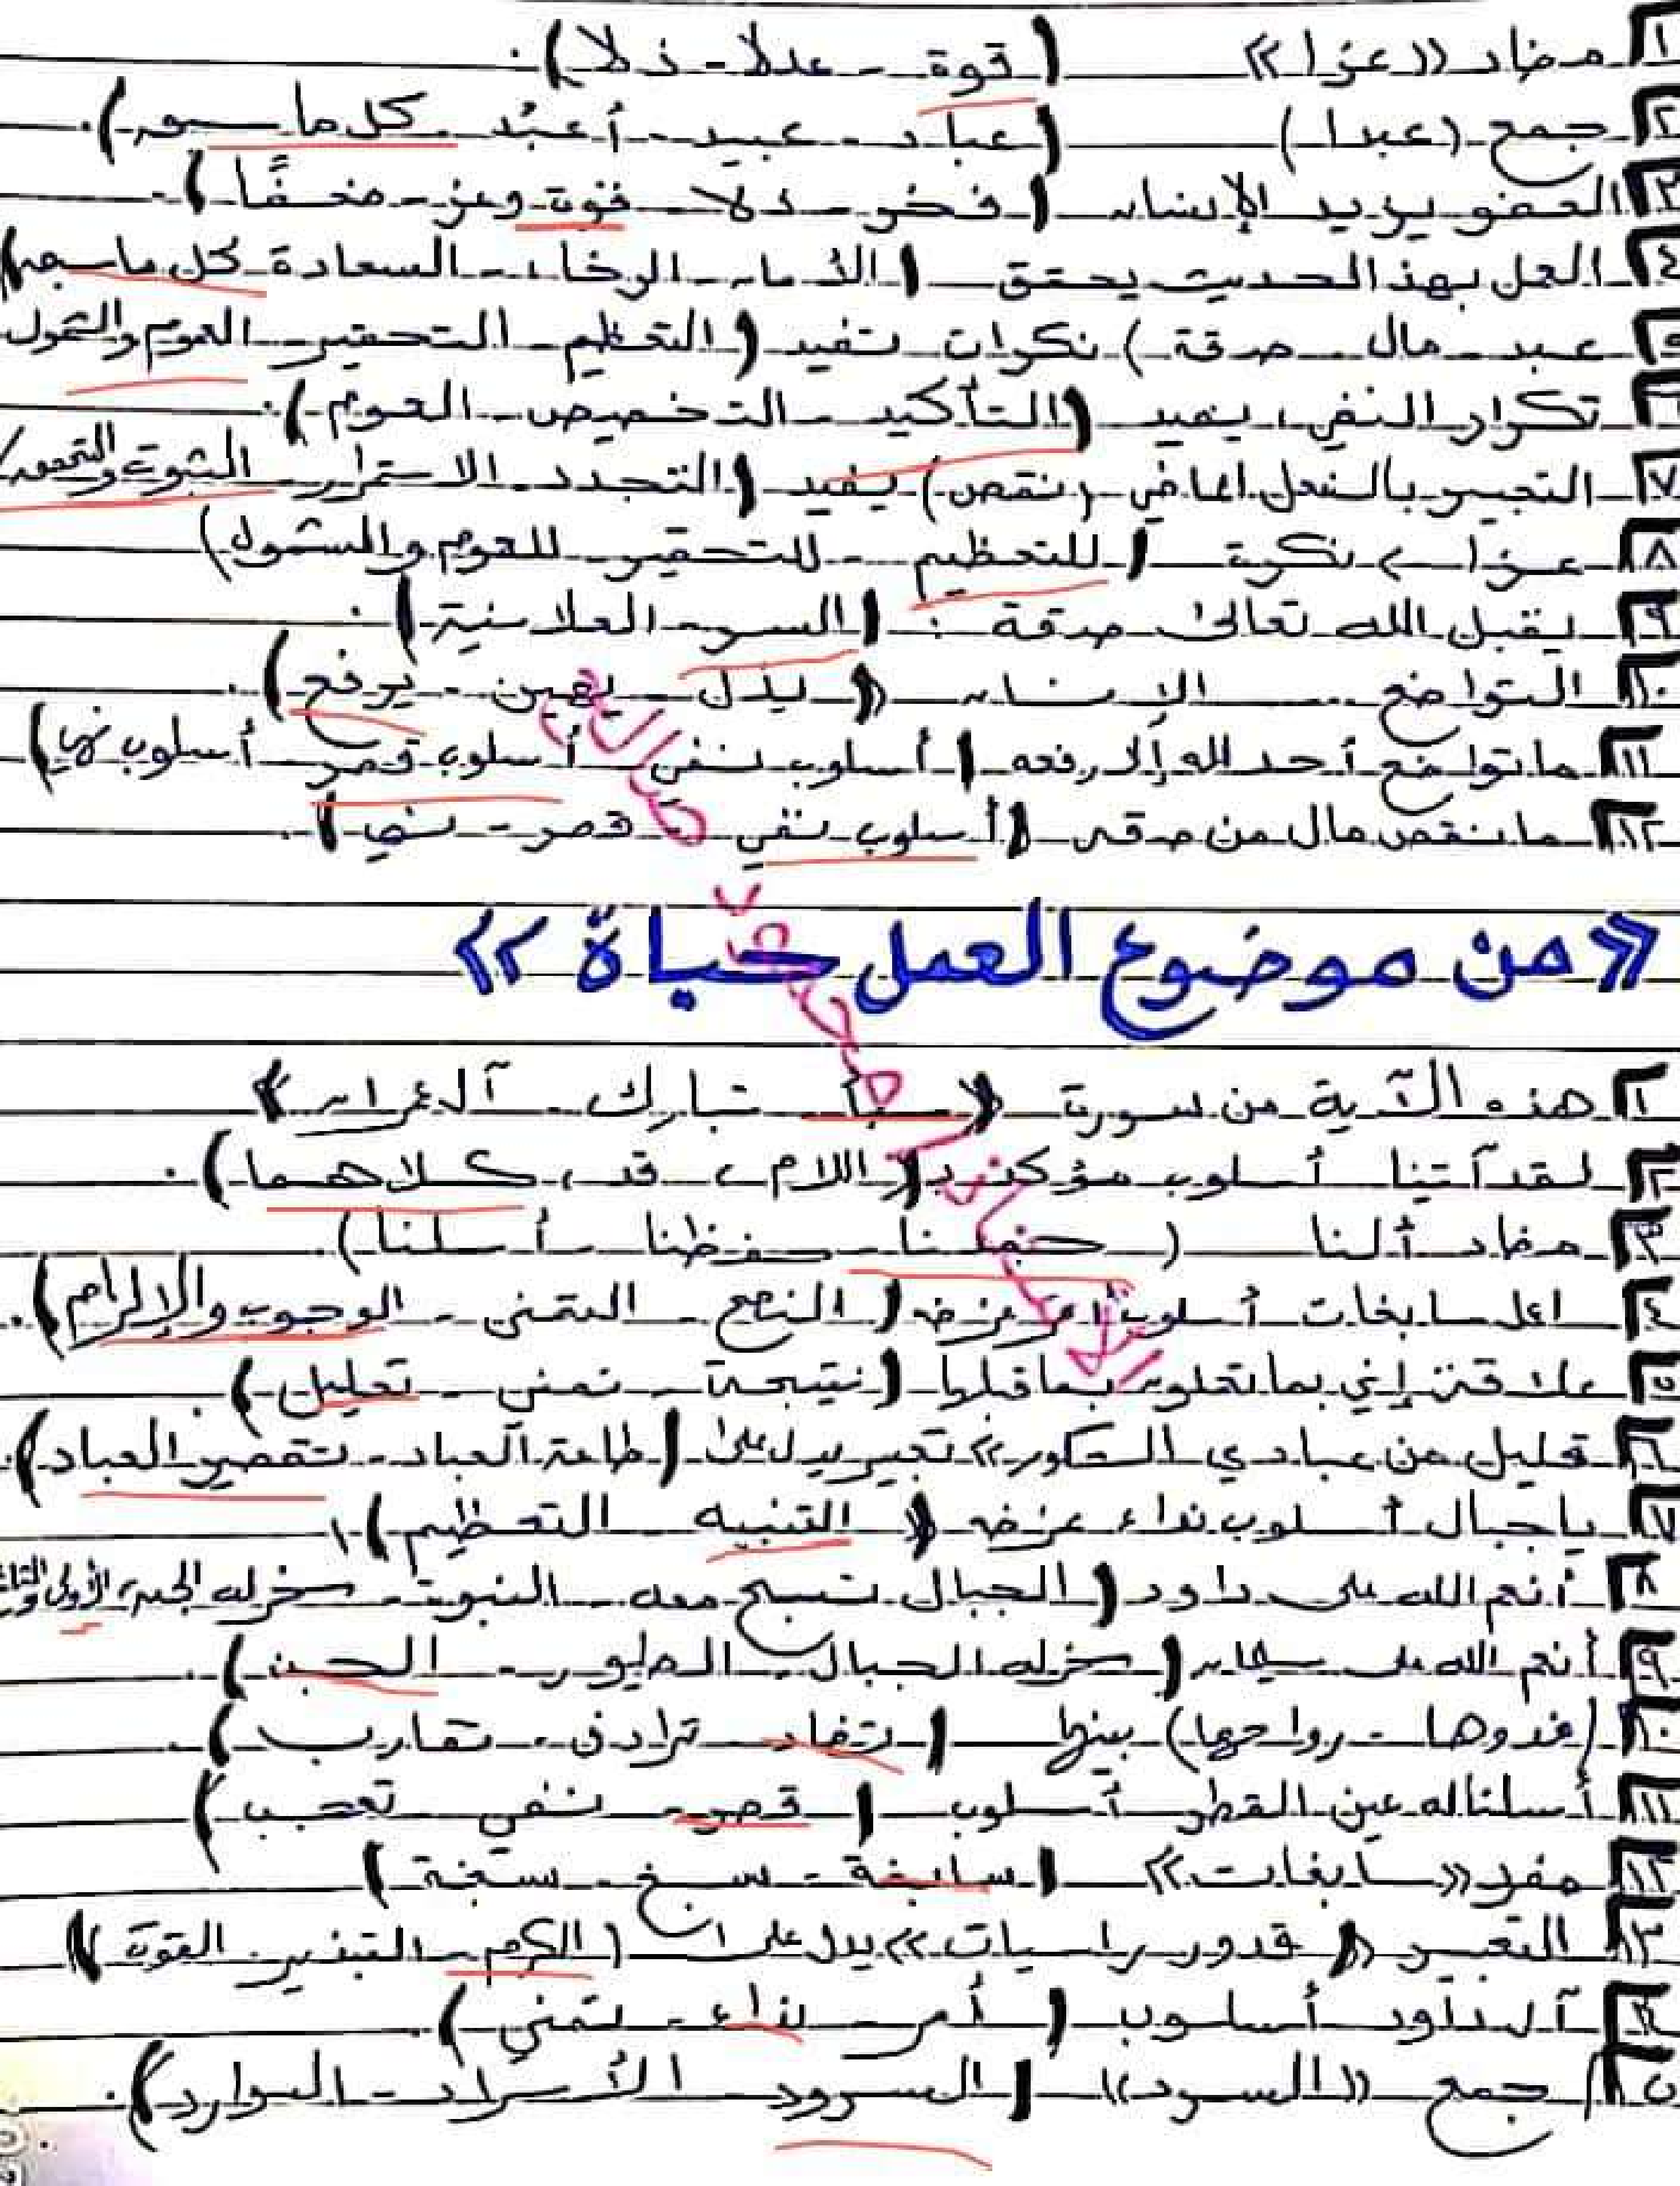 ١ مضاد «عزا» (قوة - عدلا - ذلا).
٢ جمع (عبدا) (عباد - عبيد - أعبُد كل ما سبق).
٣ العفو يزيد الإنسان (فخر - ذلا - قوة وعز - ضعفًا).
٤ العمل بهذا الحديث يحقق (الأمان - الرخاء - السعادة كل ما سبق)
٥ عبد - مال - صدقة) نكرات تفيد (التعظيم - التحقير - العموم والشمول
٦ تكرار النفي يفيد (التأكيد - التخصيص - العموم).
٧ التعبير بالفعل الماضي (نقص) يفيد (التجدد - الاستمرار - الثبوت والتحقق)
٨ عزا > نكرة (للتعظيم - للتحقير - للعموم والشمول)
٩ يقبل الله تعالى صدقة : (السر - العلانية).
١٠ التواضع ... الإنسان «(يذل - يهين - يرفع).
١١ ما تواضع أحد لله إلا رفعه (أسلوب نفي - أسلوب قصر - أسلوب نهي)
١٢ ما نقص مال من صدقة (أسلوب نفي - قصر - نهي).
«من موضوع العمل حياة»
١ هذه الآية من سورة «سبأ - تبارك - آل عمران»
٢ لقد آتينا أسلوب مؤكد بـ (اللام ، قد ، كلاهما).
٣ مضاد ألنا (جمدنا - حفظنا - أسلنا).
٤ اعمل سابغات أسلوب أمر غرضه (النصح - التمني - الوجوب والإلزام).
٥ علاقة إني بما تعملون بما قبلها (نتيجة - تمني - تعليل).
٦ قليل من عبادي الشكور» تعبير يدل على (طاعة العباد - تقصير العباد).
٧ يا جبال أسلوب نداء غرضه (التنبيه - التعظيم).
٨ أنعم الله على داود (الجبال تسبح معه - النبوة - سخر له الجن، الأولى
٩ أنعم الله على سليمان (سخر له الجبال - الطيور - الجن).
١٠ (غدوها - رواحها) بينهما (تضاد - ترادف - تقارب).
١١ أسلنا له عين القطر أسلوب (قصر - نفي - تعجب)
١٢ مفرد «سابغات» (سابغة - سبخ - سبخة)
١٣ التعبير «قدور راسيات» يدل على (الكرم - التبذير - القوة)
١٤ آل داود أسلوب (أمر - نداء - تمني).
١٥ جمع «السرد» (السرود - الأسراد - الموارد).